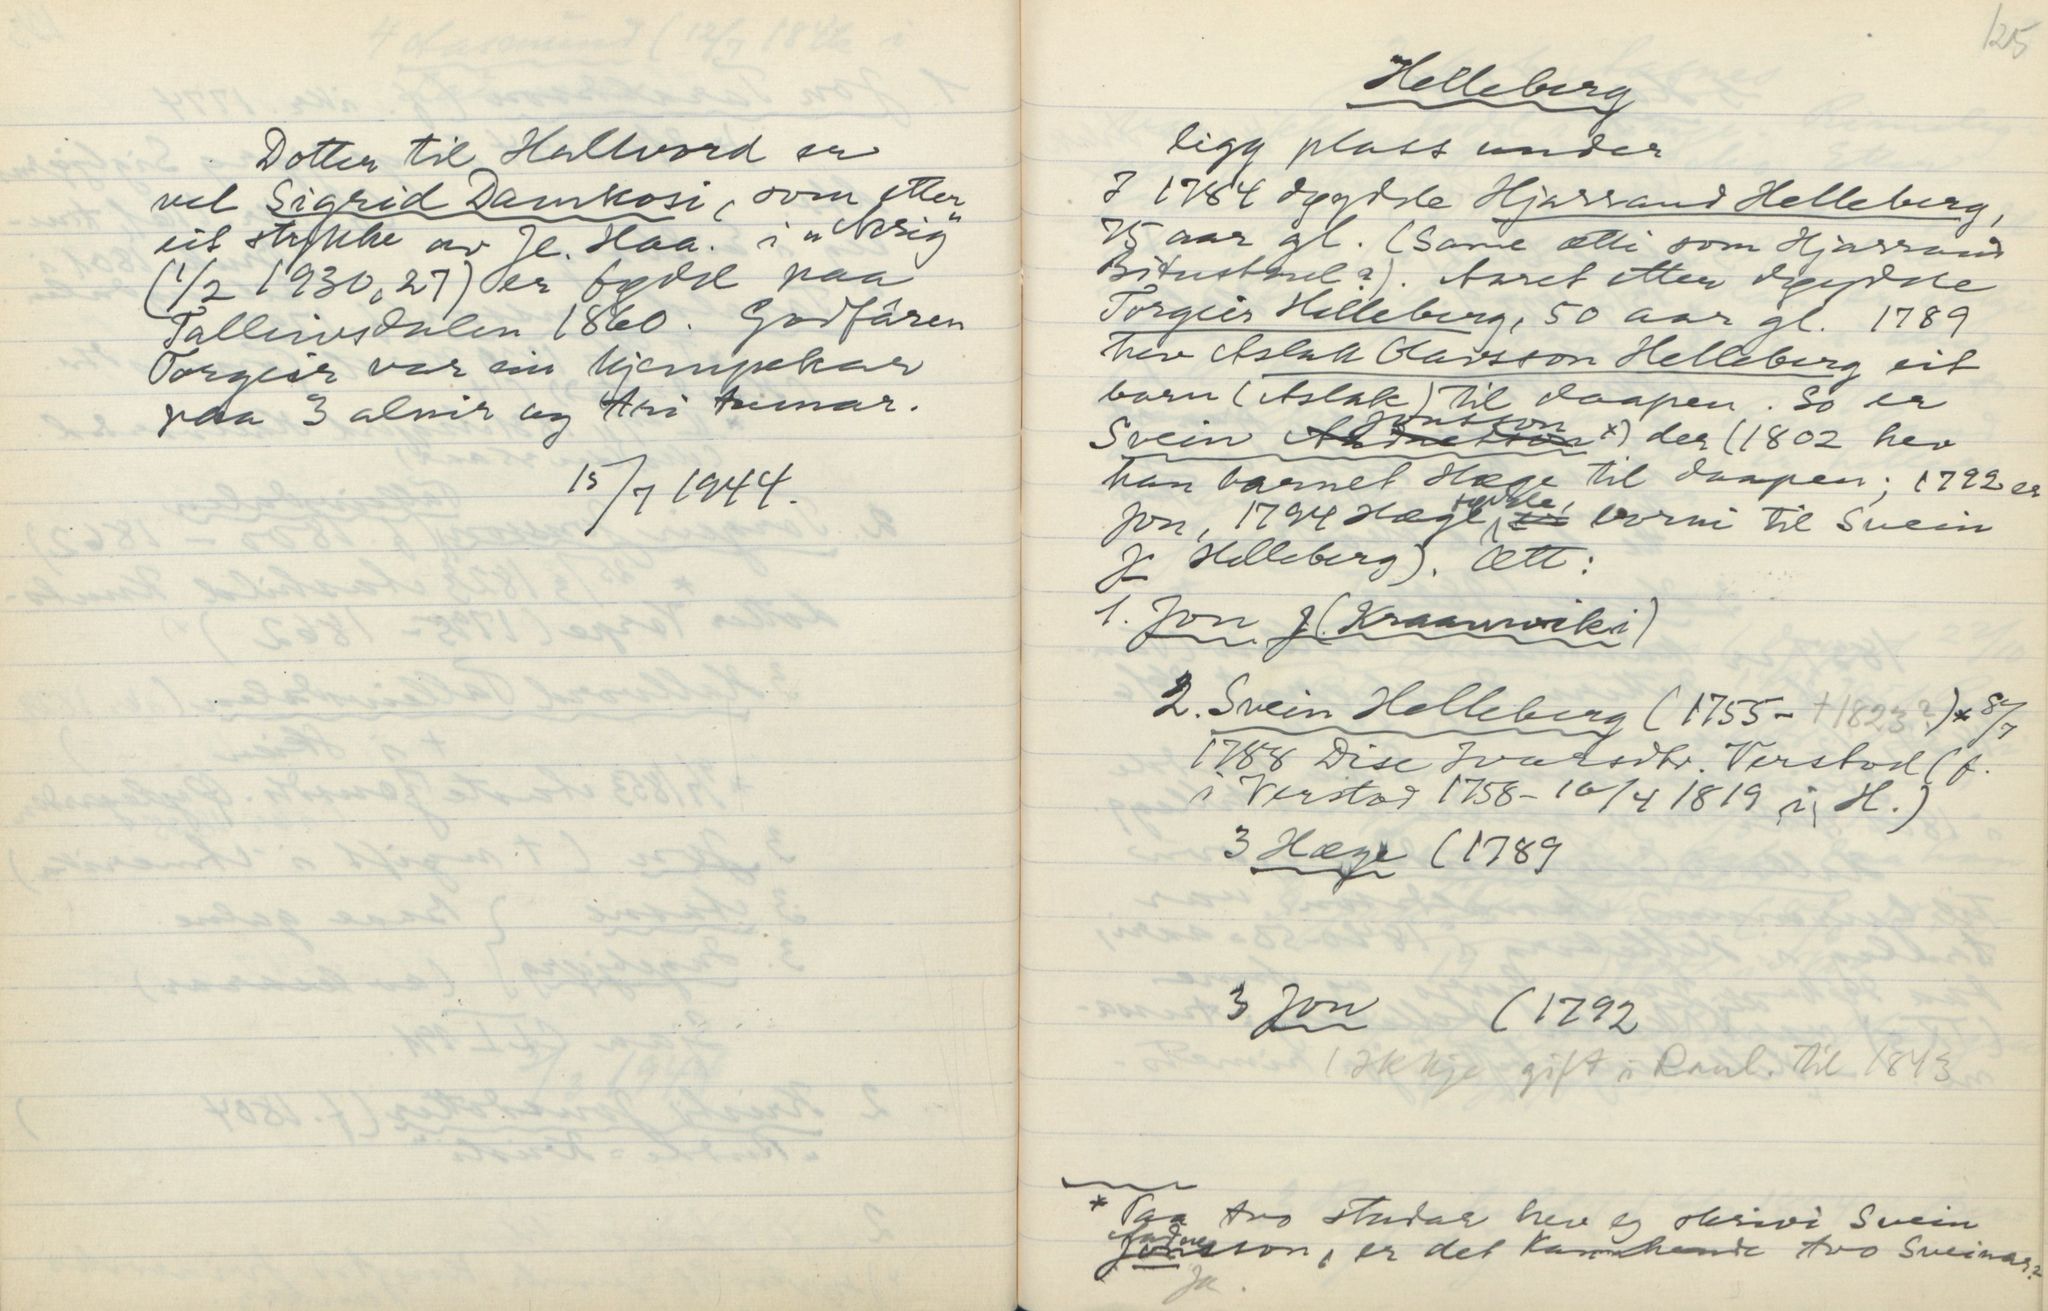 Dotter til Hallvord er
vel Sigrid Damkosi, som etter
eit stykke av Je. Haa. i "Norig"
(1/2 1930, 27) er fødd paa
Talleivsdalen 1860. Godfáren
Torgeir var ein kjempekar
paa 3 alnir og tri tumar.
15/7 1944.
125
Helleberg
ligg plass under
I 1784 døydde Hjarrand Helleberg,
75 aar gl. (Same ætti som Hjarrand
Bitustoul?). Aaret etter døydde
Torgeir Helleberg, 50 aar gl. 1789
hev Aslak Olavsson Helleberg eit
barn (Aslak) til daapen. So er
Svein Jonsson *) der (1802 hev
han barnet Hæge til daapen; 1792 er
Jon, 1794 Hæge, borni til Svein
J. Helleberg). Ætt:
1. Jon J. (Kraamviki)
2. Svein Helleberg (1755- †1823?) * 8/7
1788 Dise Ivarsdtr. Verstad (f.
i Verstad 1758- 10/4 1819 i H.)
3 Hæge (1789
3 Jon (1792
Ikkje gift i Raul. til 1843
* Paa tvo stadar hev eg skrivi Svein
Jonsson, er det kannhende tvo Sveinar?
Ja.